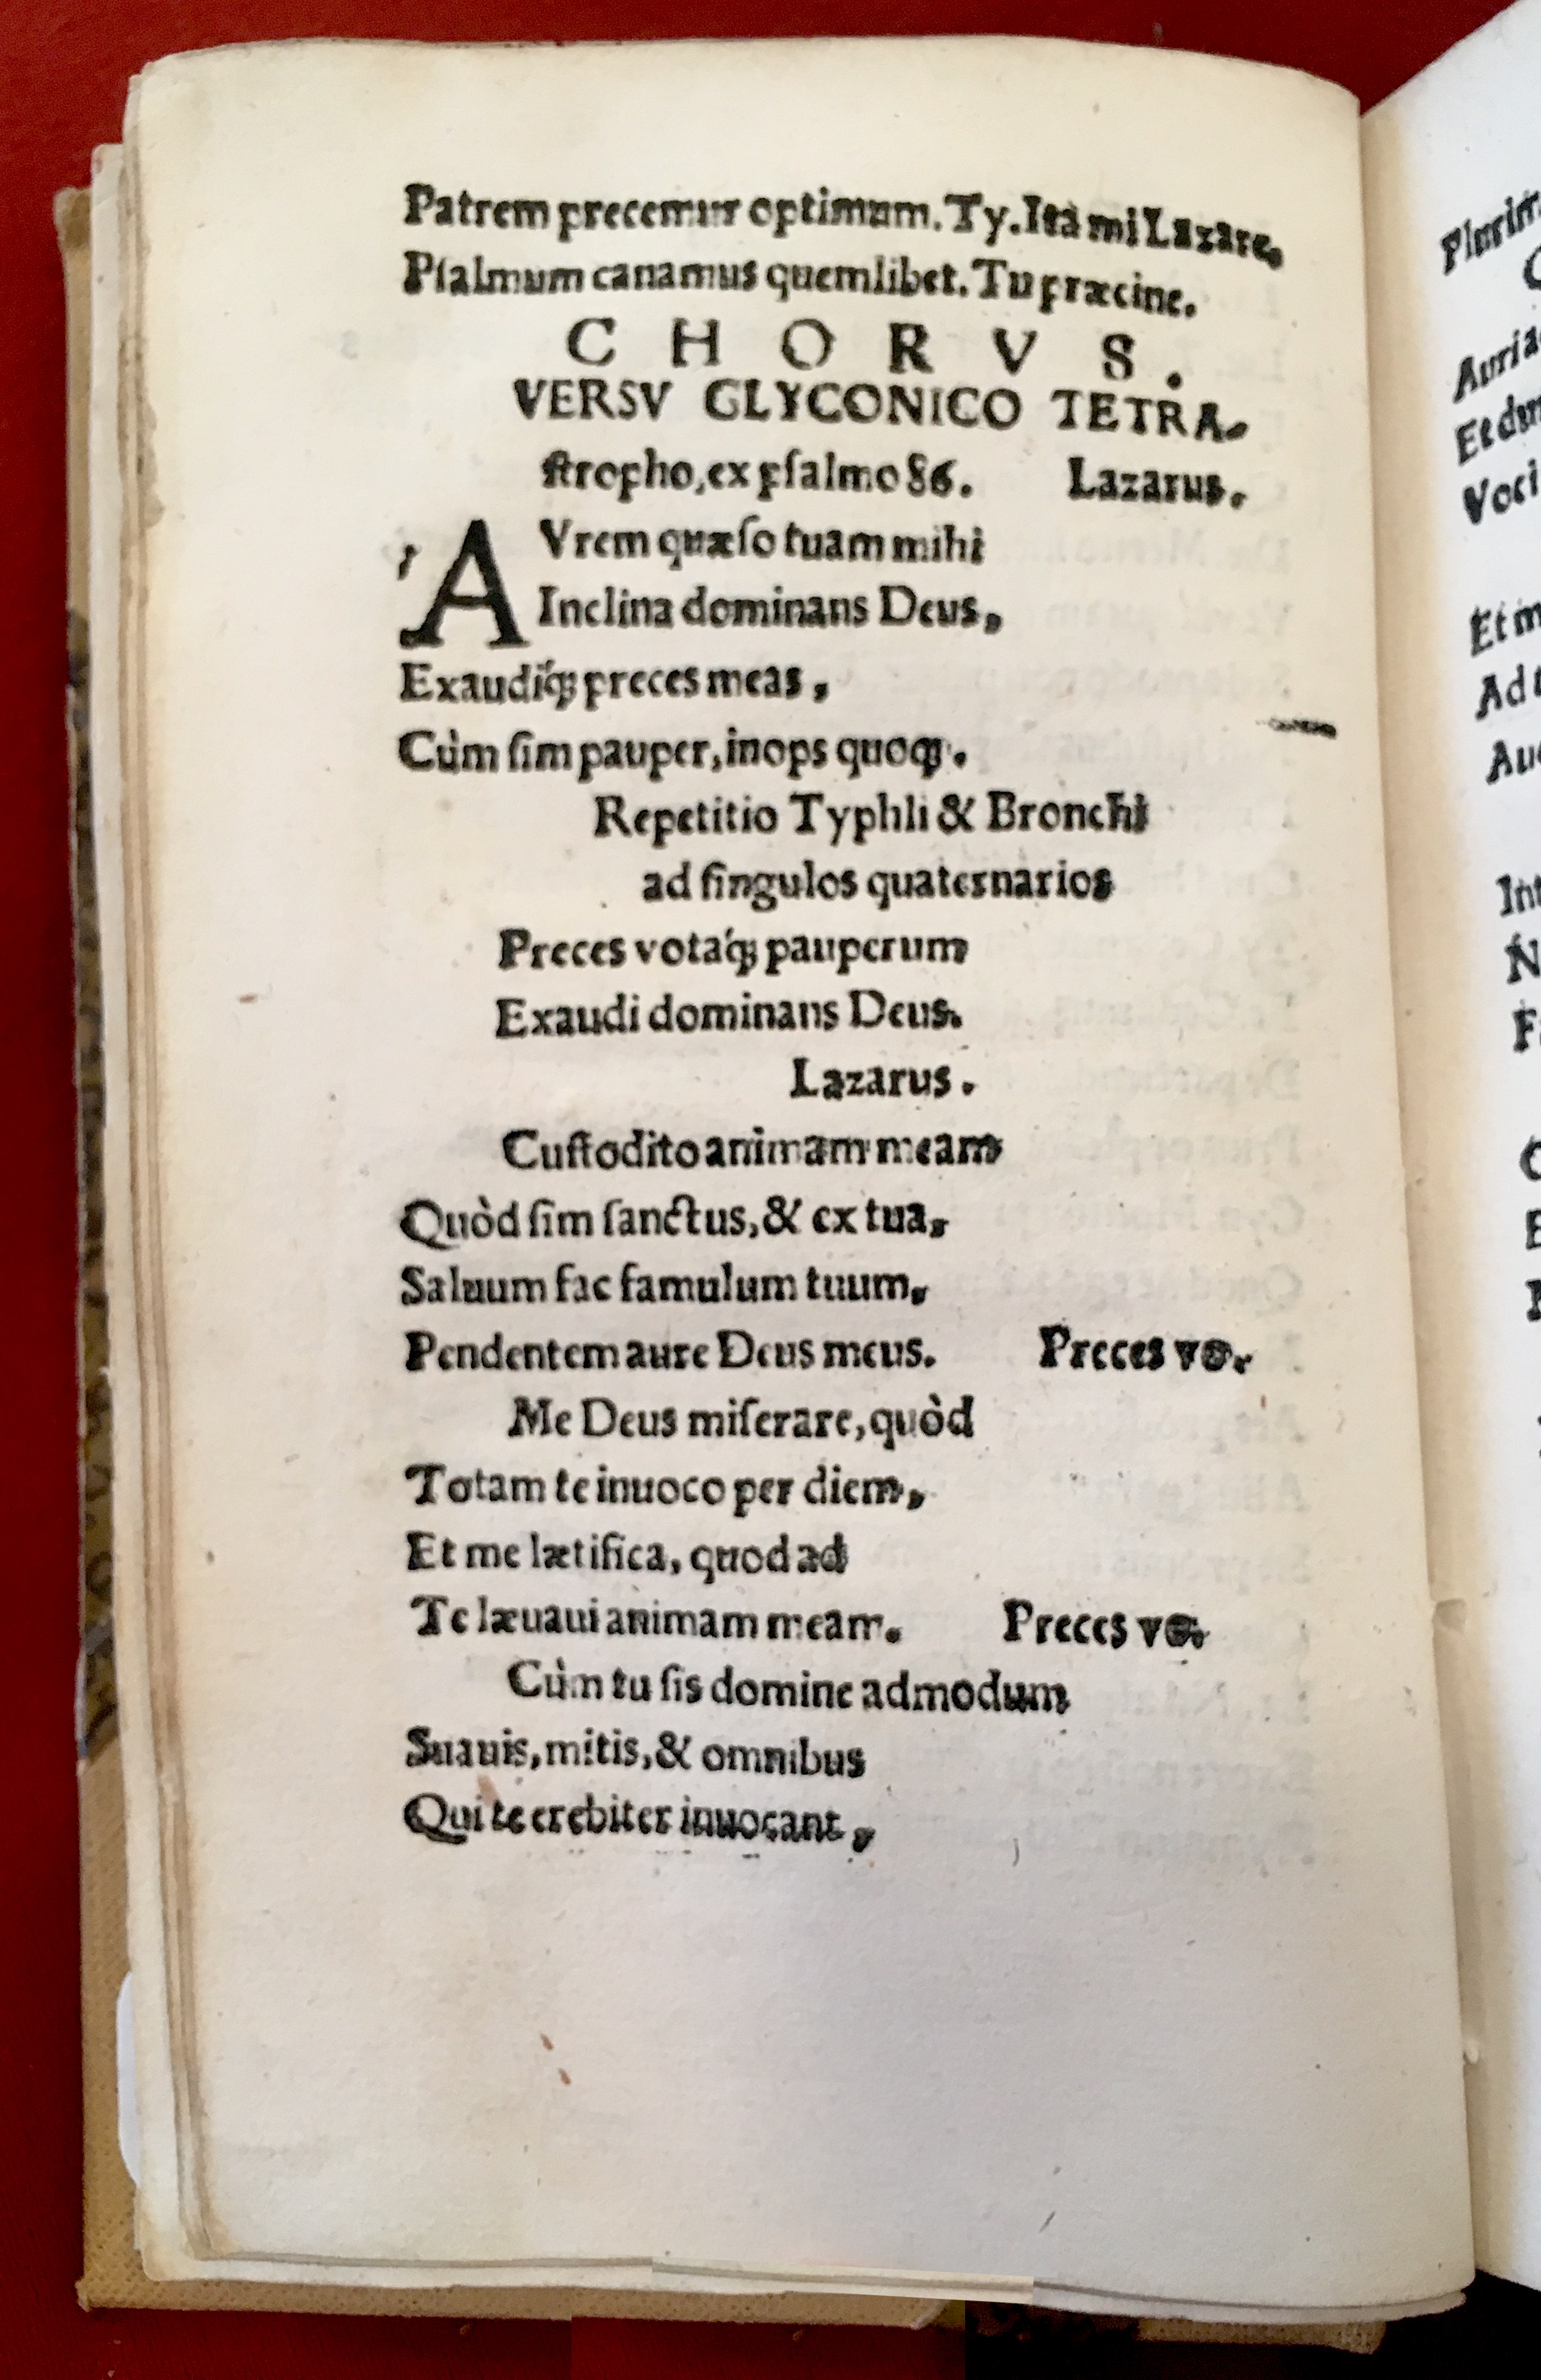 Patrem precemur optimum. Ty. Ità mi Lazare.
Pſalmum canamus quemlibet. Tu præcine.
CHORVS.
VERSV GLYCONICO TETRA-
ſtropho, ex pſalmo 86. Lazarus.
AVrem quæſo tuam mihi
Inclina dominans Deus,
Exaudíq; preces meas,
Cùm ſim pauper, inops quoq;.
Repetitio Typhli & Bronchi
ad ſingulos quaternarios
Preces votáq; pauperum
Exaudi dominans Deus.
Lazarus.
Cuſtodito animam meam
Quòd ſim ſanctus, & ex tua,
Saluum fac famulum tuum,
Pendentem aure Deus meus. Preces vo.
Me Deus miſerare, quòd
Totam te inuoco per diem,
Et me lætifica, quod ad
Te læuaui animam meam. Preces vo.
Cùm tu ſis domine admodum
Suauis, mitis, & omnibus
Qui te crebiter inuocant,
Et
Voci
Et m
Ad